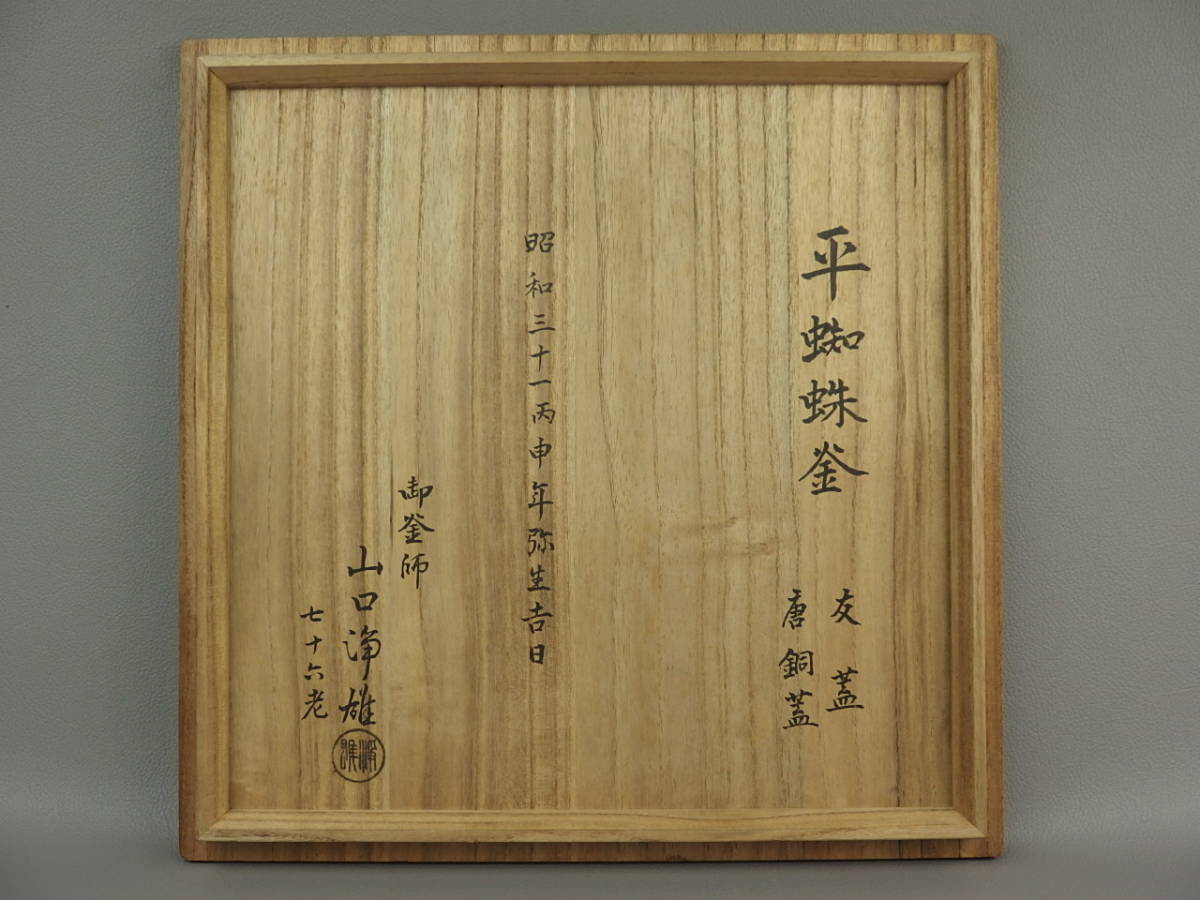 平蜘蛛釜
友蓋
唐銅蓋
昭和三十一丙申年弥生吉日
御釜師
山口浄雄
七十六老
浄雄